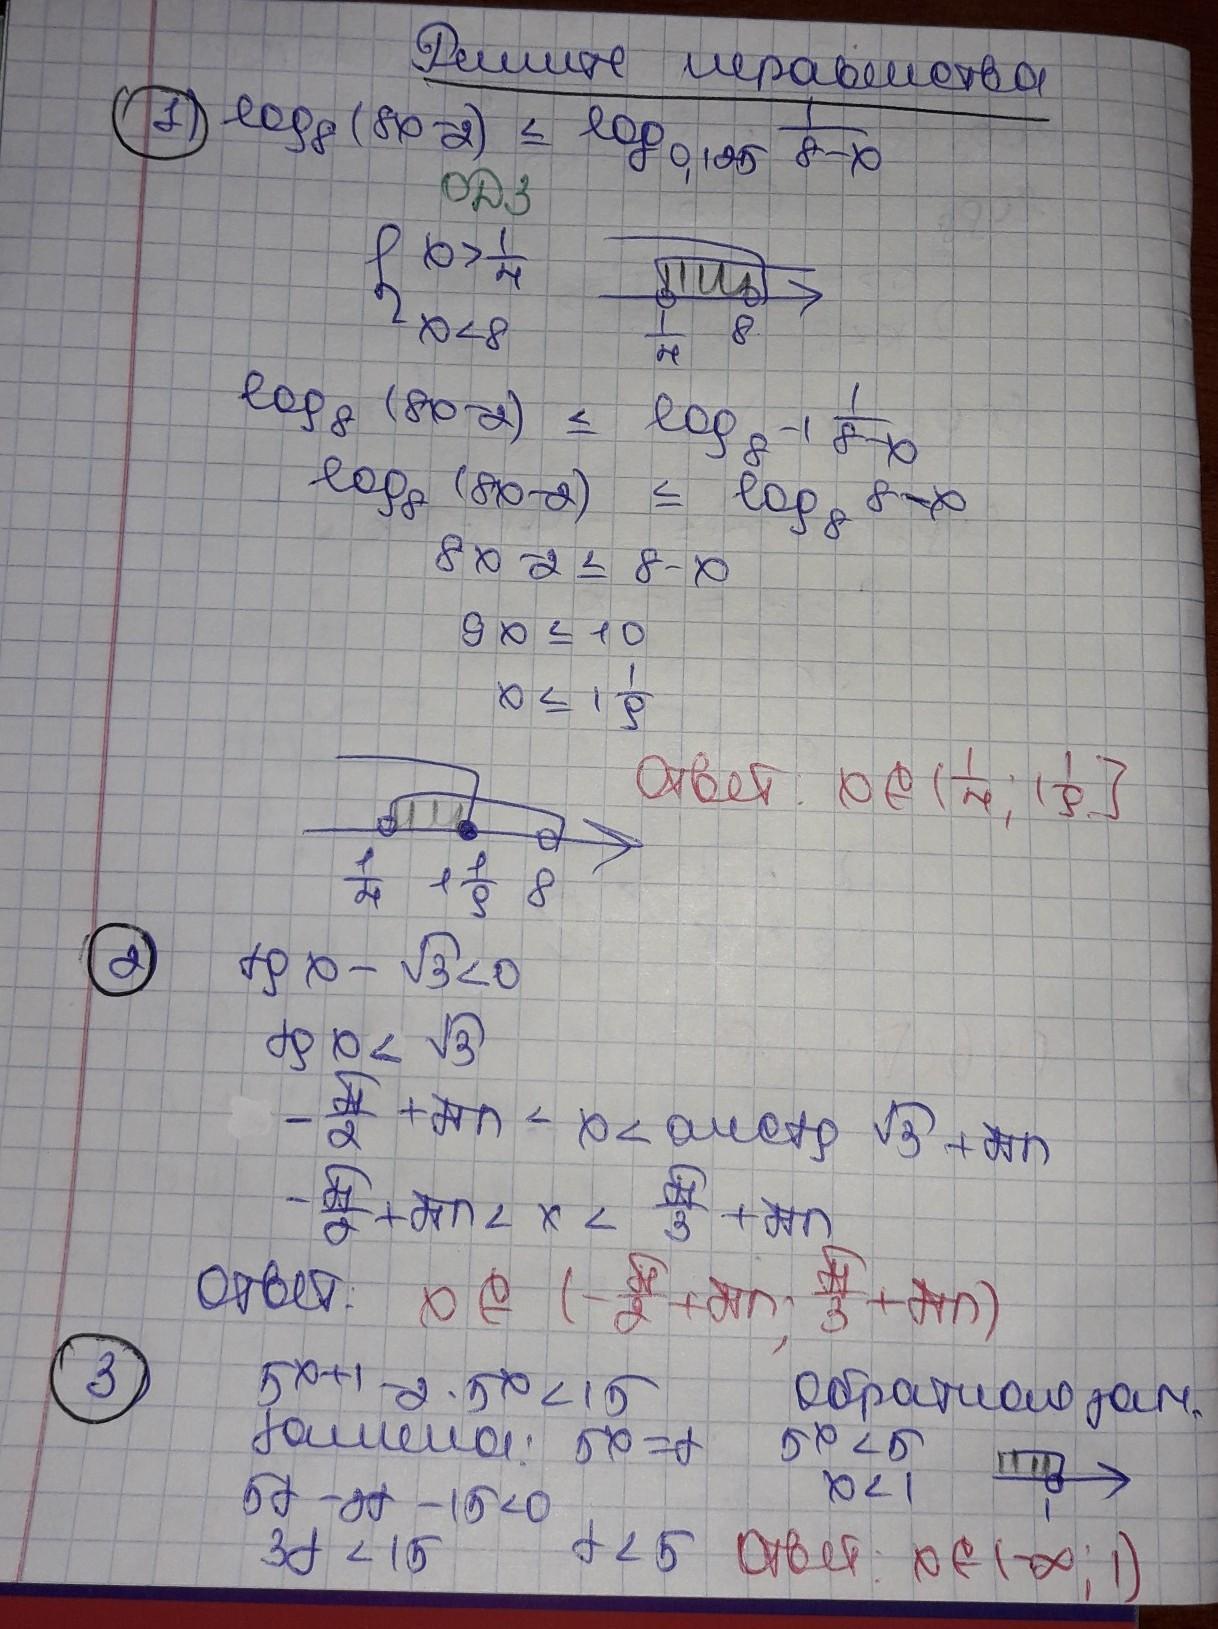 Решите неравенства
1) log₈(8x-2) ≤ log₀,₁₂₅ 1/(8-x)
ОДЗ
{ x > 1/4
x < 8
1/4 8
log₈ (8x-2) ≤ log₈-1 1/(8-x)
log₈ (8x-2) ≤ log₈ 8-x
8x-2 ≤ 8-x
9x ≤ 10
x ≤ 1 1/9
Ответ: x ∈ (1/4; 1 1/9]
1/4 1 1/9 8
2 tg x - √3 < 0
tg x < √3
-π/2 + πn < x < arctg √3 + πn
-π/2 + πn < x < π/3 + πn
Ответ: x ∈ (-π/2 + πn; π/3 + πn)
3 5ˣ⁺¹ - 2·5ˣ < 15
Замена: 5ˣ = t
5t - 2t - 15 < 0
3t < 15 t < 5
Обратная зам.
5ˣ < 5
x < 1
1
Ответ: x ∈ (-∞; 1)